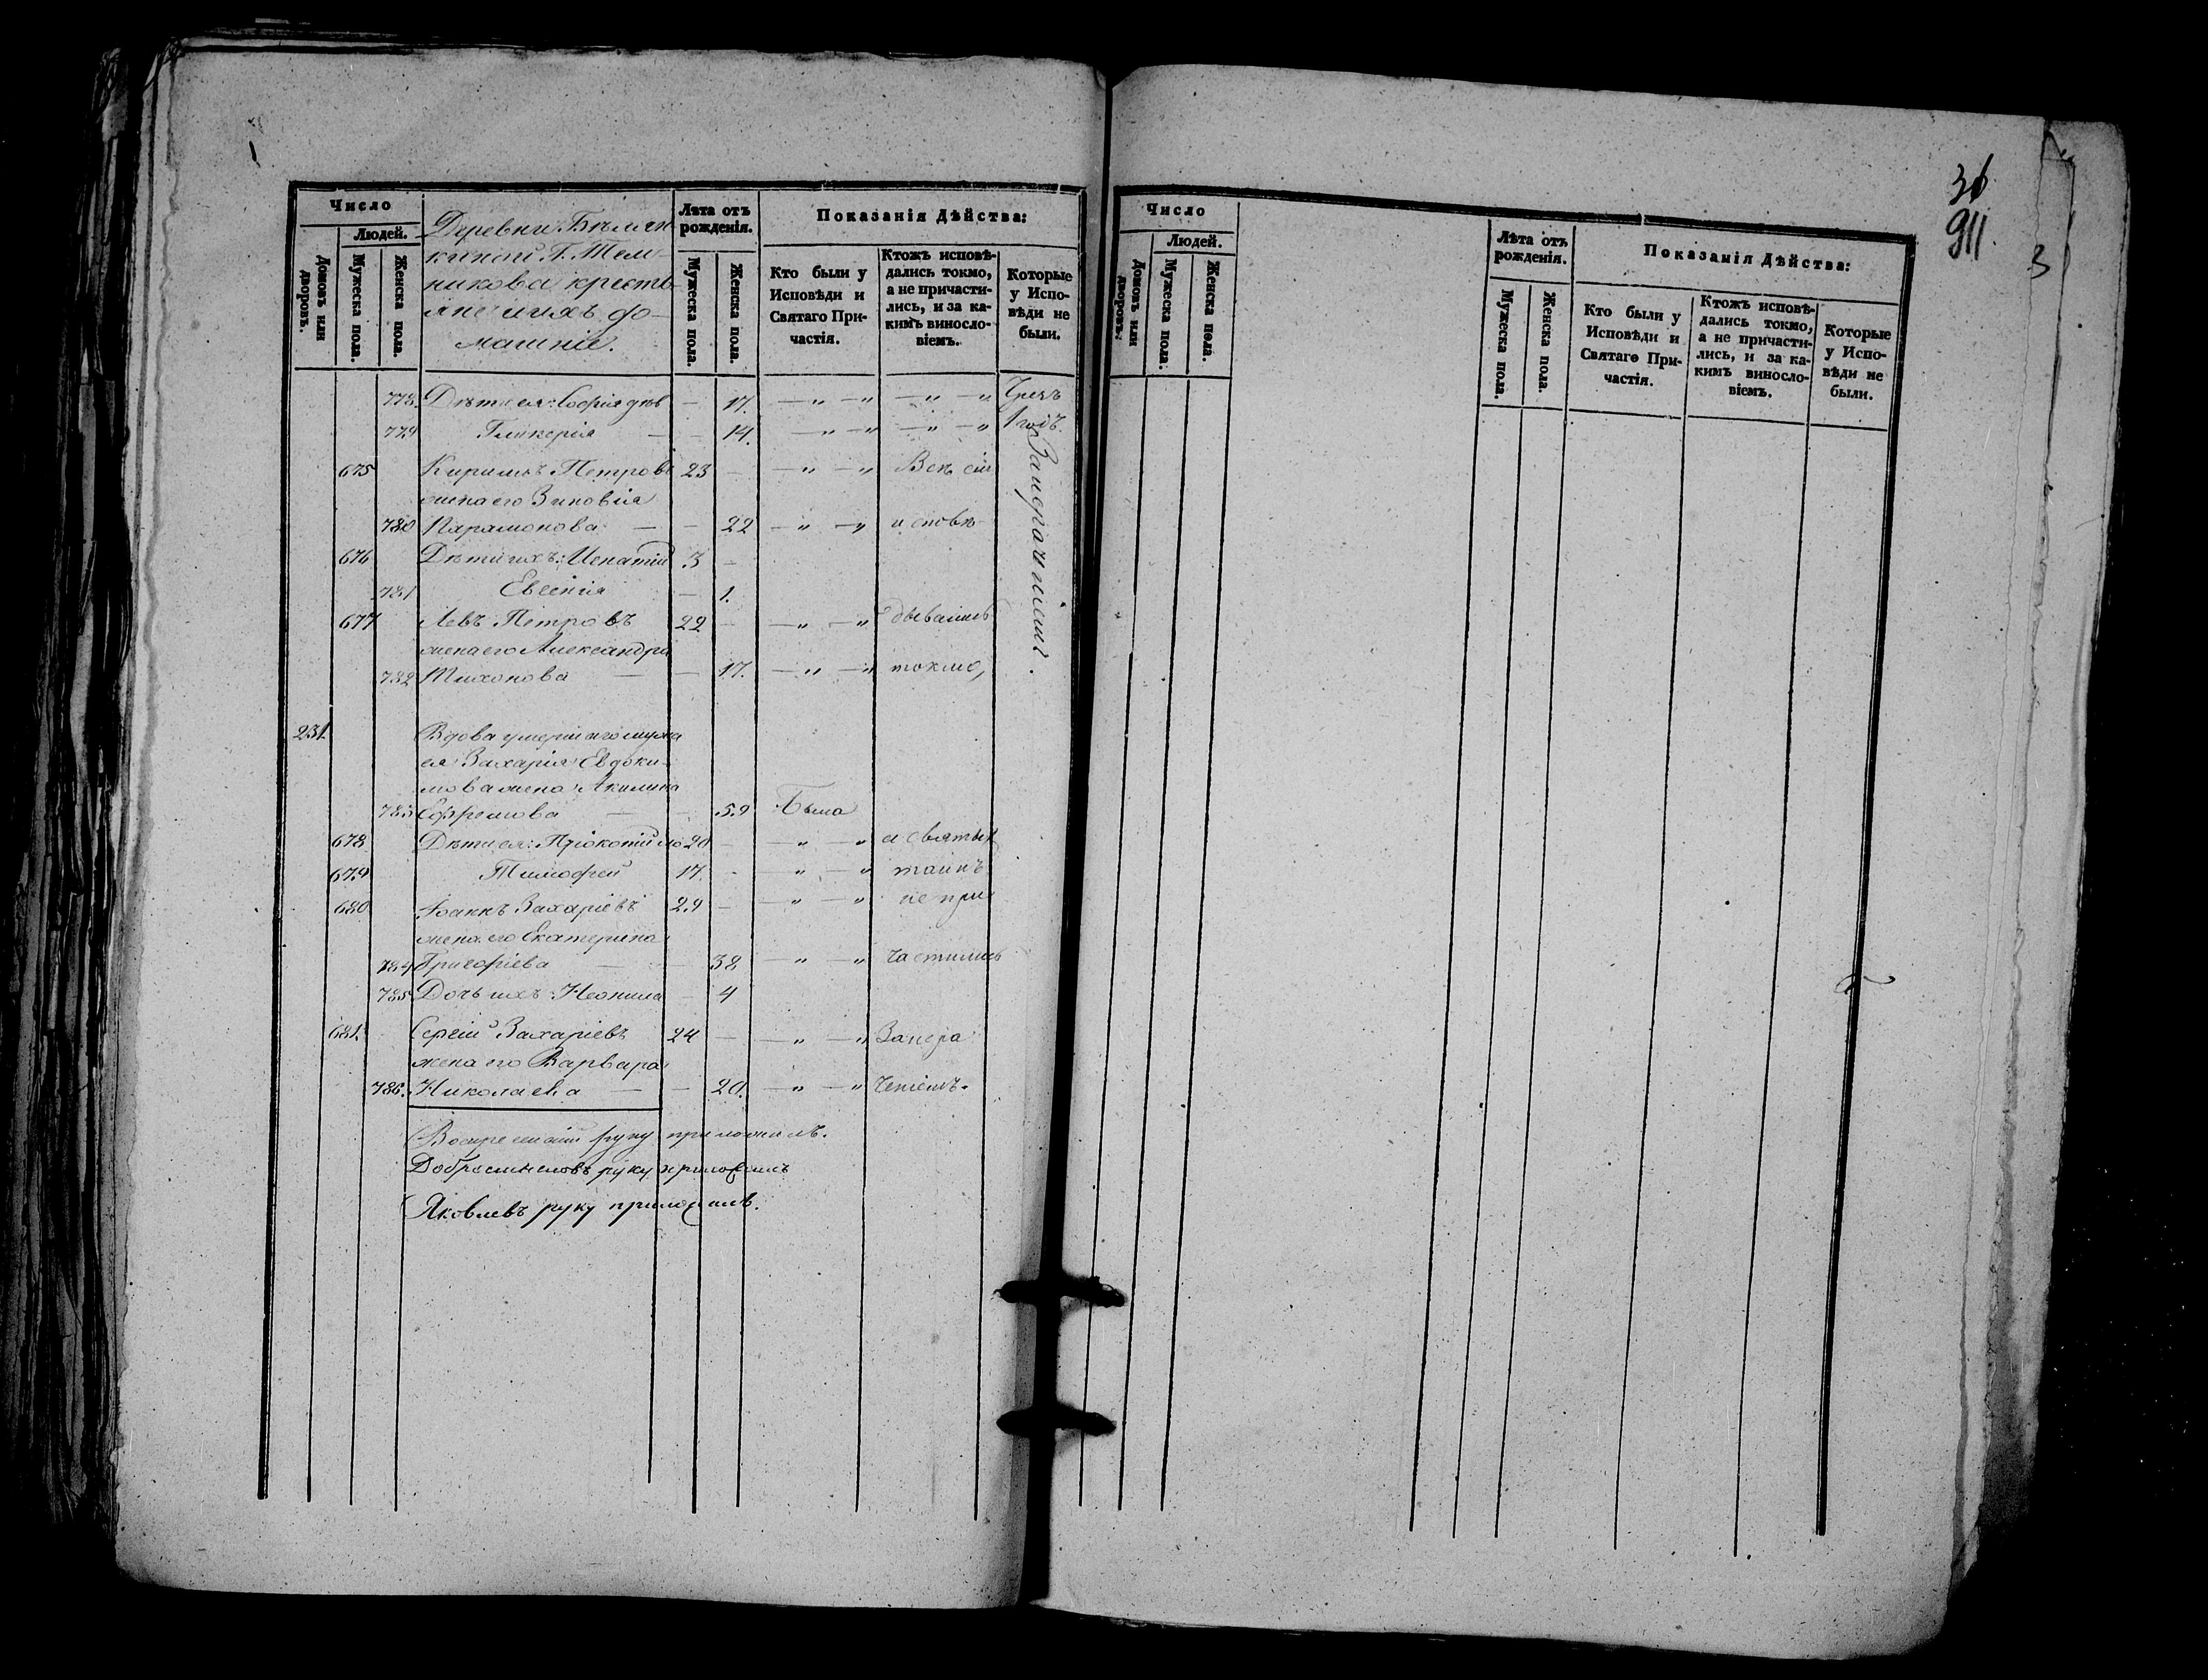 Число
Людей.
Домовъ или дворовъ.
Мужеска пола.
Женска пола.
Деревни
киной Г. Тель-
никова кресть-
яне и ихъ до-
машніе.
Лѣта отъ рожденія.
Мужеска пола.
Женска пола.
Показанія Дѣйства:
Кто были у Исповѣди и Святаго Причастія.
Ктожъ исповѣдались токмо, а не причастились, и за какимъ винословіемъ.
Которые у Исповѣди не были.
778 Дѣти ея: Софія дѣв — 17. — „ — „ — „ — „ Чрезъ
779 Гликерія — — 14. — „ — „ — „ — „ 1 годъ
Занерачніемъ.
675 Кирилъ Петровъ 23 — — „ — „ Всѣ сіи
жена его Зиновія
780 Парамонова — — 22 — „ — „ исповѣ-
676 Дѣти ихъ: Игнатій 3 —
781 Евгенія — 1.
677 Левъ Петровъ 22 — — „ — „ дывались
жена его Александра
782 Тихонова — — 17. — „ — „ токмо,
231. Вдова умершаго мужа
ея Захарія Евдоки-
мова жена Акилина
783 Ефремова — — 59 Была
678 Дѣти ея: Прокопій 20 — „ — „ а святыхъ
679 Тимофей 17. - „ — „ таинъ
680 Іоаннъ Захаріевъ 29 — — „ — „ не при-
жена его Екатерина
784 Григоріева — — 32 — „ — „ частились
785 Дочь ихъ: Неонила — 4
681. Сергій Захаріевъ 24 — — „ — „ Занера-
жена его Варвара
786. Николаева — — 20. — „ — „ ченіемъ.
руку приложилъ.
Добросмысловъ руку приложилъ
Яковлевъ руку приложилъ.
36
911
3
Число
Людей.
Домовъ или дворовъ.
Мужеска пола.
Женска пола.
Лѣта отъ рожденія.
Мужеска пола.
Женска пола.
Показанія Дѣйства:
Кто были у Исповѣди и Святаго Причастія.
Ктожъ исповѣдались токмо, а не причастились, и за какимъ винословіемъ.
Которые у Исповѣди не были.